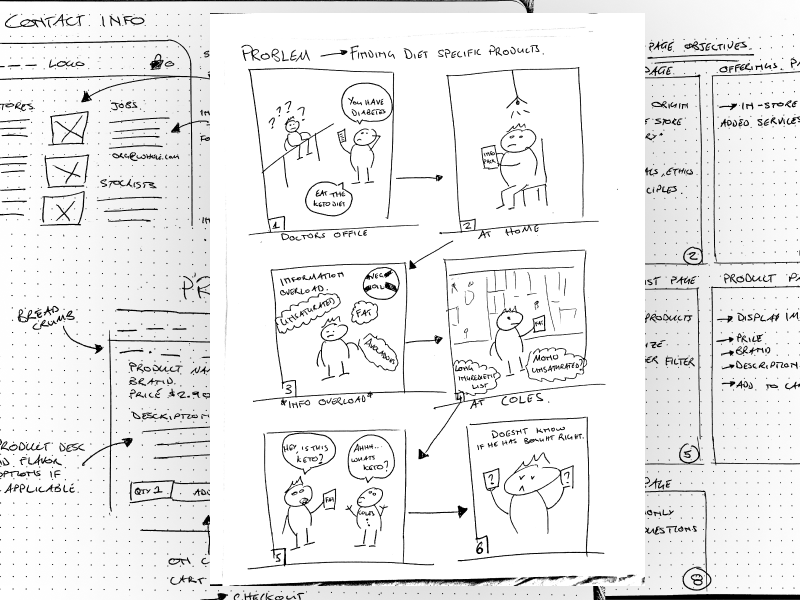 CONTACT INFO
LOGO
JOBS
ORG@WHOLE.COM
STOCKISTS
BREAD
CRUMB
PRODUCT NA
BRAND.
PRICE $2.90
DESCRIPTION
PRODUCT DESC
FLAVOR
OPTIONS IF
APPLICABLE.
QTY 1
ADD
ON C
CART
CHECKOUT
PROBLEM → FINDING DIET SPECIFIC PRODUCTS.
? ? ? ?
YOU HAVE
DIABETES
EAT THE
KETO DIET
1
DOCTORS OFFICE
INFO
PACK
2
AT HOME
INFORMATION
OVERLOAD.
FAT
AVOCADOES
3
*INFO OVERLOAD*
FAT
LONG
INGREDIENT
LIST
MONO
UNSATURATED?
4
AT COLES.
HEY, IS THIS
KETO?
AHHH...
WHATS
KETO?
FAT
COLES
5
DOESNT KNOW
IF HE HAS BOUGHT RIGHT.
?
?
6
PAGE OBJECTIVES.
PAGE
ORIGIN
STORE
ETHICS
CIPLES
2
OFFERINGS PA
→ IN-STORE
ADDED SERVICES
IST PAGE
PRODUCTS
IZE
ER FILTER
5
PRODUCT P
→ DISPLAY IM
→ PRICE
→ BRAND
→ DESCRIPTION
→ ADD TO CA
PAGE
ONLY
QUESTIONS
8